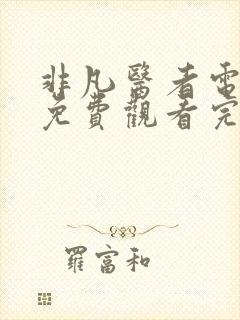 非凡醫者電
免費觀看完
羅富和